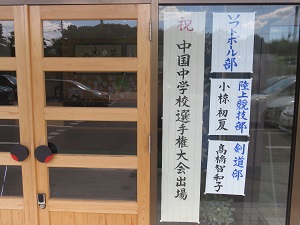 祝
中国中学校選手権大会出場
ソフトボール部
陸上競技部
小椋初夏
剣道部
髙橋智和子